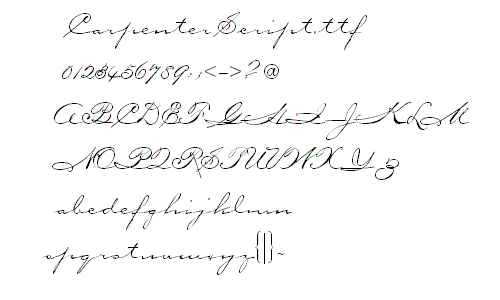 CarpenterScript.ttf
0123456789:;<->?@
ABCDEFGHIJKLM
NOPQRSTUVWXYZ
abcdefghijklmn
opqrstuvwxyz{|}~